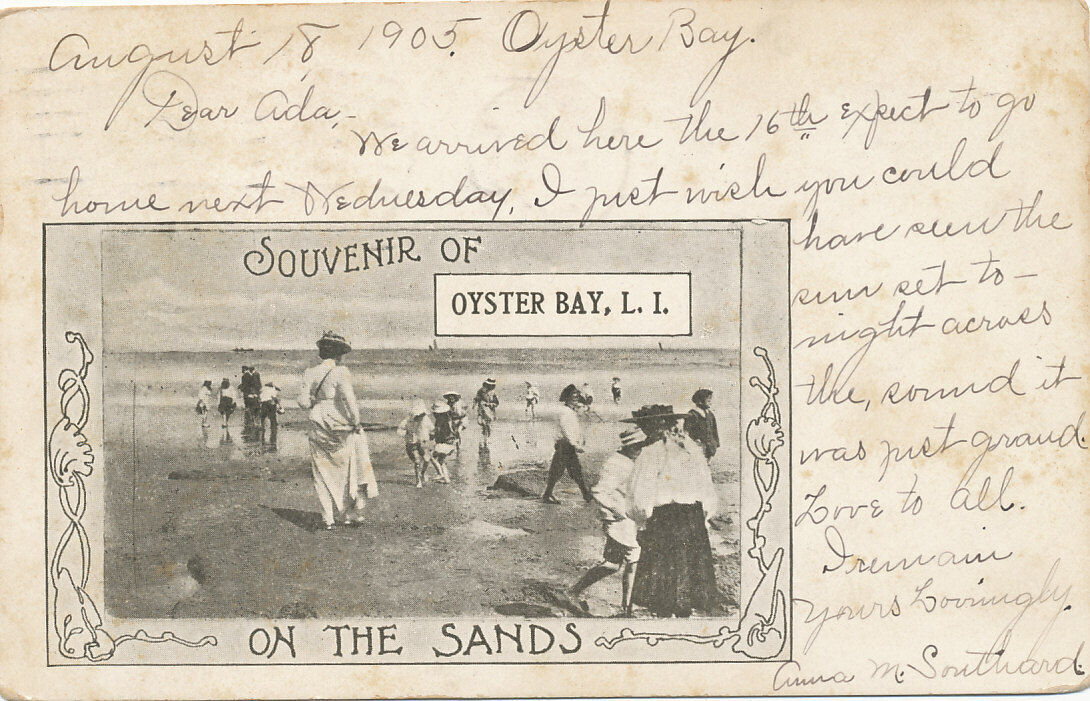 August 18, 1905. Oyster Bay.
Dear Ada,-
We arrived here the 16th expect to go
home next Wednesday, I just wish you could
have seen the
sun set to-
night across
the, sound it
was just grand.
Love to all.
I remain
Yours Lovingly.
Anna M. Southard.
SOUVENIR OF
OYSTER BAY, L. I.
ON THE SANDS